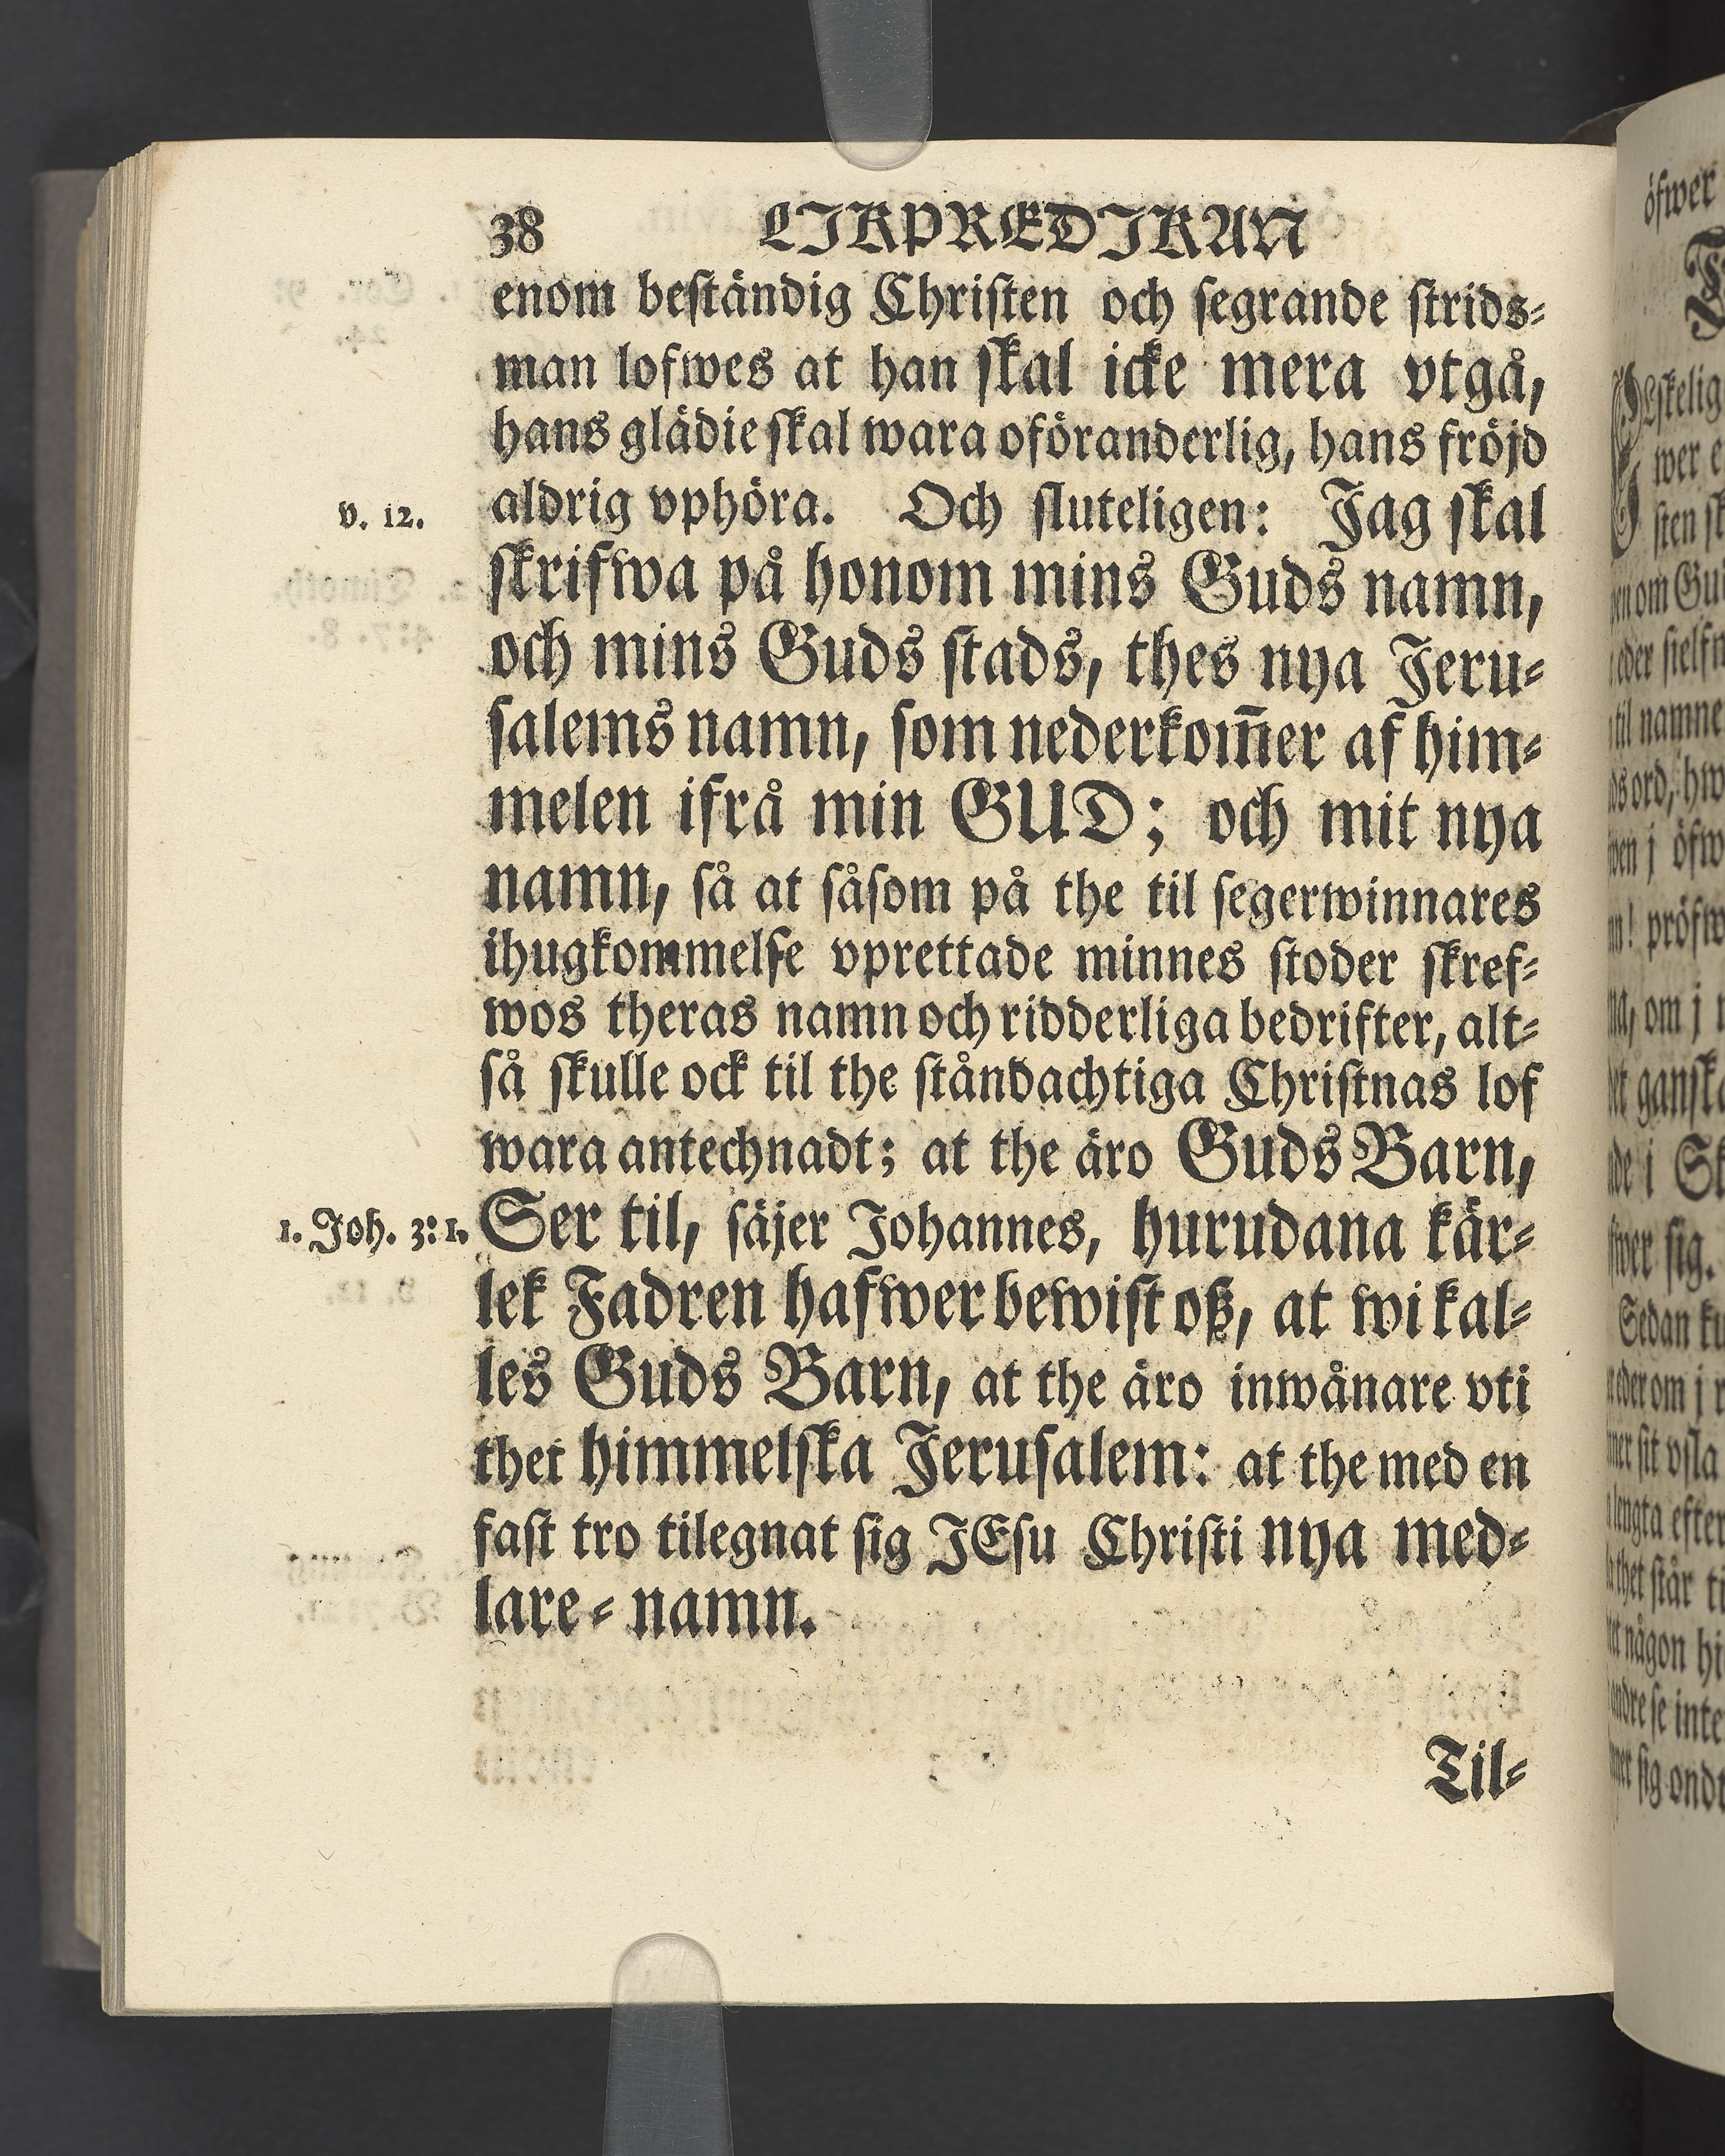 38 LIKPREDIKAN
enom beständig Christen och segrande strids⸗
man lofwes at han skal icke mera vtgå,
hans glädie skal wara oföranderlig, hans fröjd
v. 12. aldrig vphöra. Och sluteligen: Jag skal
skrifwa på honom mins Guds namn,
och mins Guds stads, thes nya Jeru⸗
salems namn, som nederkom̃er af him⸗
melen ifrå min GUD; och mit nya
namn, så at såsom på the til segerwinnares
ihugkommelse vprettade minnes stoder skref⸗
wos theras namn och ridderliga bedrifter, alt⸗
så skulle ock til the ståndachtiga Christnas lof
wara antechnadt; at the äro Guds Barn,
1. Joh. 3: 1. Ser til, säjer Johannes, hurudana kär⸗
lek Fadren hafwer bewist oß, at wi kal⸗
les Guds Barn, at the äro inwånare vti
thet himmelska Jerusalem: at the med en
fast tro tilegnat sig JEsu Christi nya med⸗
lare⸗namn.
Til⸗
öfwer
wer
sten
om
til namne
ord,
öfw
pröfw
om j
ganska
i
sig.
Sedan
om j
sit vsla
lengta efter
thet står
någon
se inte
sig ondt